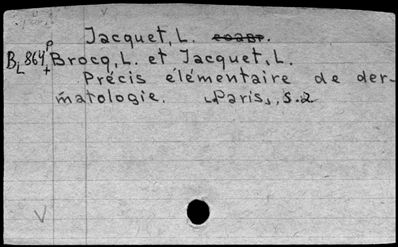 Jacquet, L.
BL 864 Brocq, L. et Jacquet, L.
Précis élémentaire de der-
matologie. Paris, s.a
V